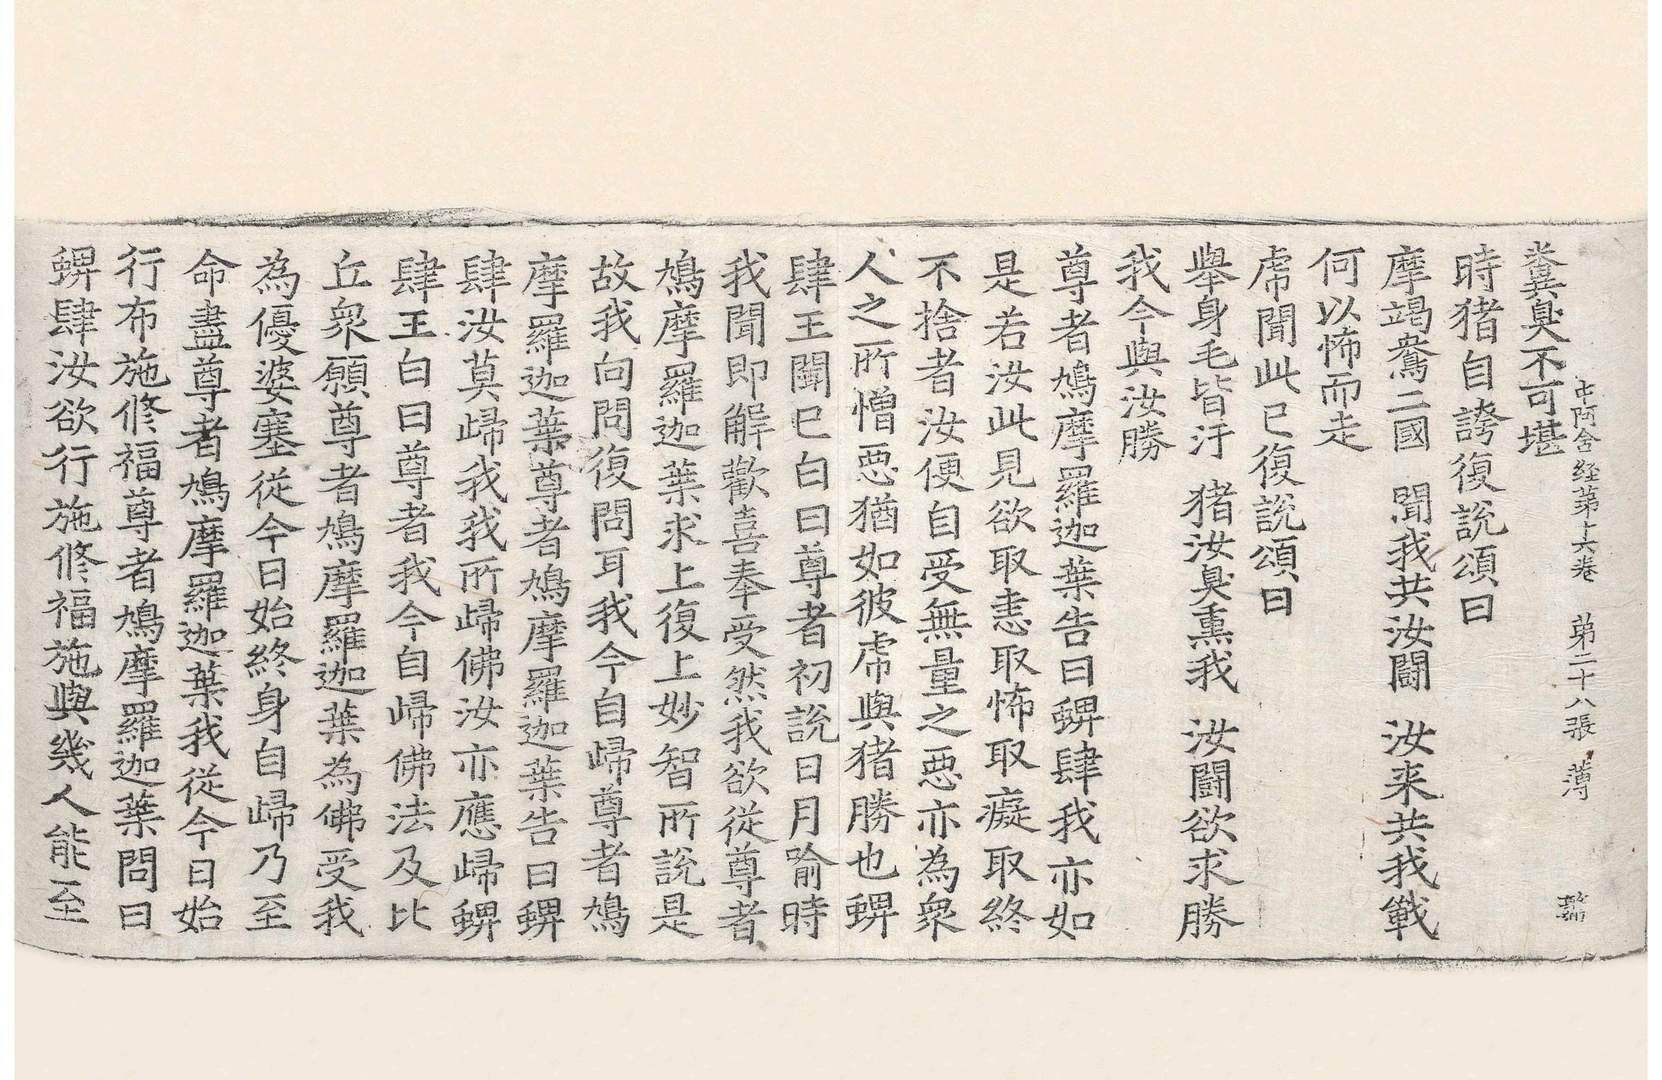 中阿含経苐十六卷 苐二十八張 薄
糞臭不可堪
時猪自誇復說頌曰
摩竭鴦二國 聞我共汝鬪 汝来共我戰
何以怖而走
虎聞此已復說頌曰
舉身毛皆汙 猪汝臭熏我 汝鬪欲求勝
我今與汝勝
尊者鳩摩羅迦葉告曰蜱肆我亦如
是若汝此見欲取恚取怖取癡取終
不捨者汝便自受無量之惡亦為衆
人之所憎惡猶如彼虎與猪勝也蜱
肆王聞已白曰尊者初說日月喻時
我聞即解歡喜奉受然我欲從尊者
鳩摩羅迦葉求上復上妙智所說是
故我向問復問耳我今自歸尊者鳩
摩羅迦葉尊者鳩摩羅迦葉告曰蜱
肆汝莫歸我我所歸佛汝亦應歸蜱
肆王白曰尊者我今自歸佛法及比
丘衆願尊者鳩摩羅迦葉為佛受我
為優婆塞從今日始終身自歸乃至
命盡尊者鳩摩羅迦葉我從今日始
行布施修福尊者鳩摩羅迦葉問曰
蜱肆汝欲行施修福施與幾人能至